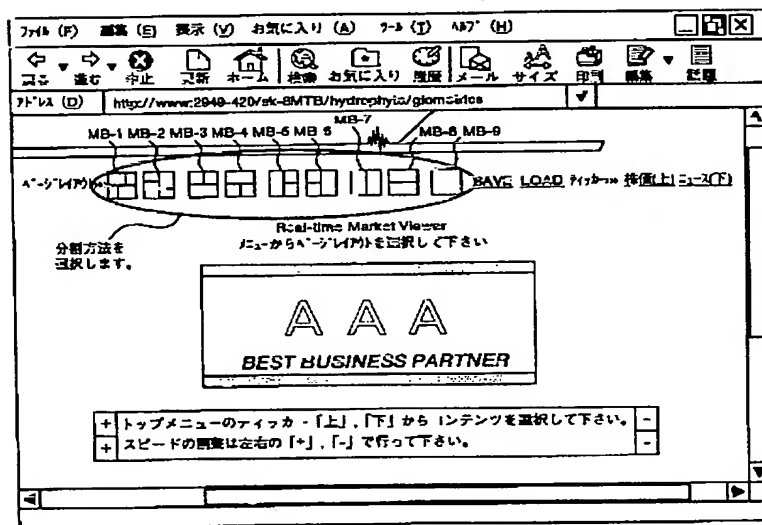 ファイル (F) 編集 (E) 表示 (V) お気に入り (A) ツール (T) ヘルプ (H)
戻る 進む 中止 更新 ホーム 検索 お気に入り 履歴 メール サイズ 印刷 編集
アドレス (D) http://www:2949-420/sk-8MTB/
MB-7
MB-1 MB-2 MB-3 MB-4 MB-5 MB-6 MB-8 MB-9
ページレイアウト SAVE LOAD 株価(上) ニュース(下)
分割方法を
選択します。
Real-time Market Viewer
メニューからページレイアウトを選択して下さい
A A A
BEST BUSINESS PARTNER
+ トップメニューのティッカ-「上」,「下」からコンテンツを選択して下さい。 -
+ スピードの調整は左右の「+」,「-」で行って下さい。 -